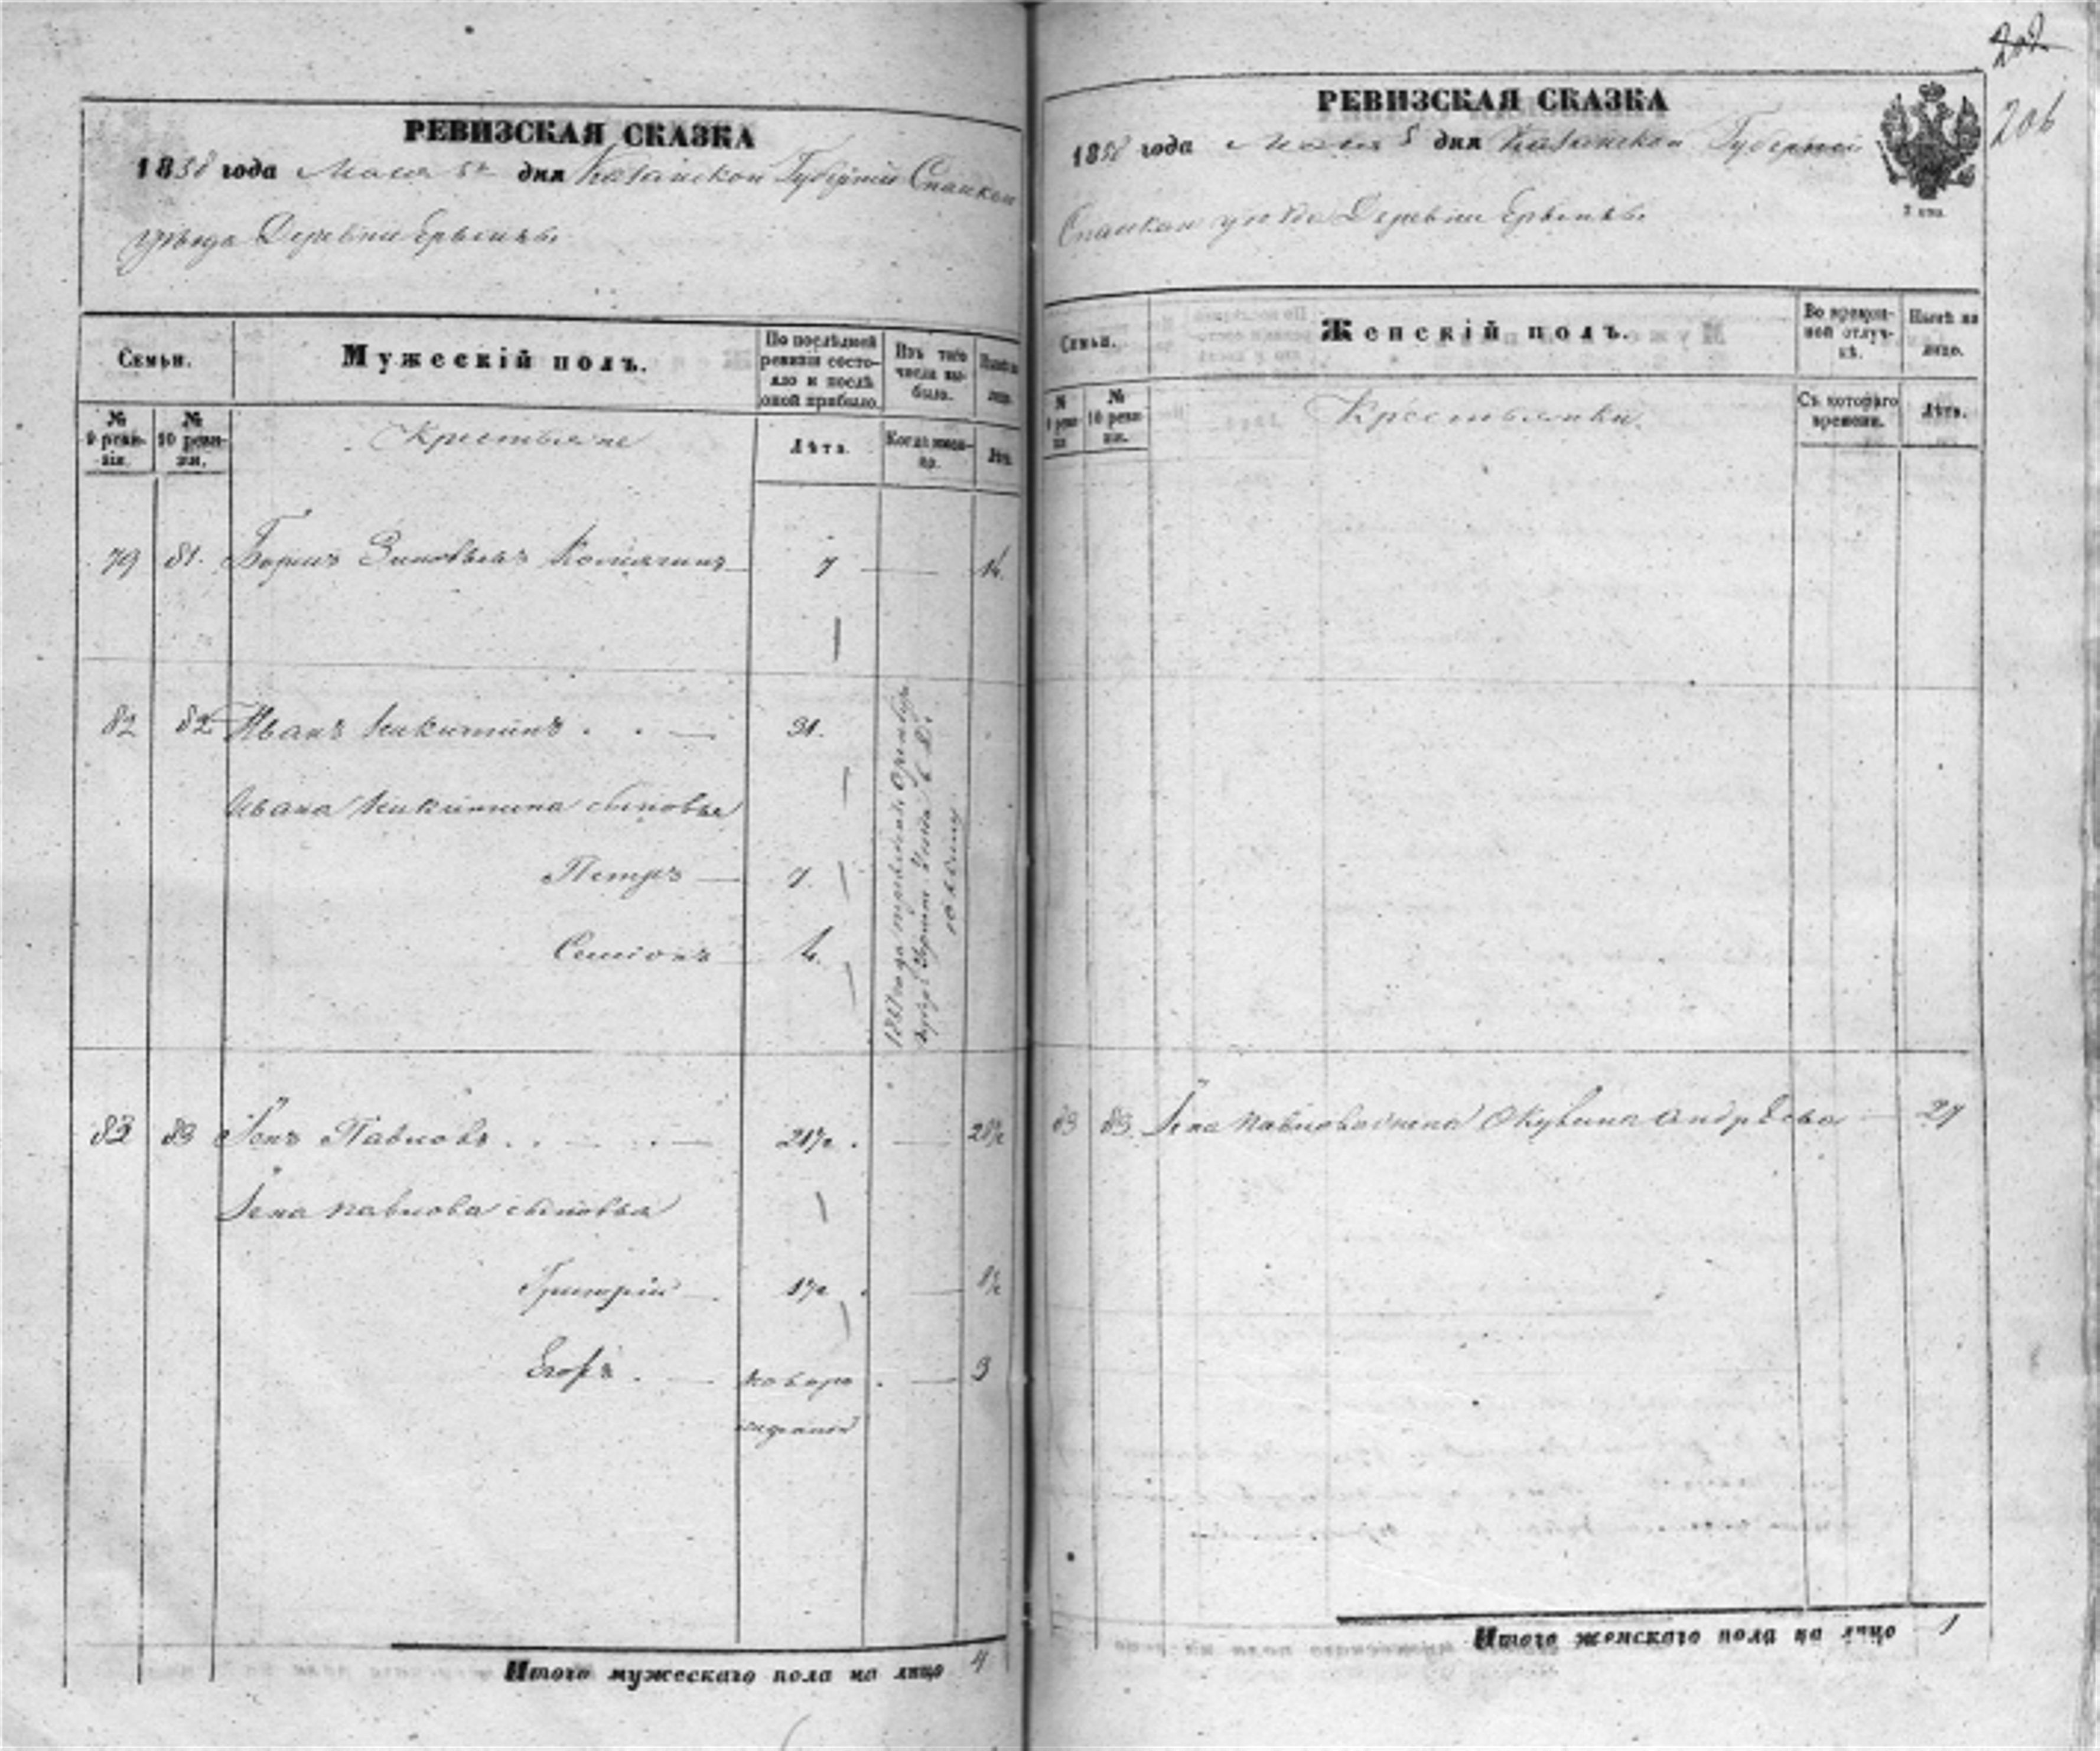 202
206
РЕВИЗСКАЯ СКАЗКА
1858 года Мая 5 дня Казанской Губернии Спаской
уѣзда Деревни
Семьи.
Мужескій полъ.
По послѣдней ревизіи состояло и послѣ оной прибыло.
Изъ того числа выбыло.
Нынѣ на лицо.
№ 9 ревизіи.
№ 10 ревизіи.
Крестьяне
Лѣта.
Когда именно.
Лѣта.
79 81. Борисъ Зиновьевъ 7 14.
82 82 Иванъ Никитинъ 31.
Ивана Никитина сыновья
Петръ 7.
Семіонъ 4.
83 83 Павловъ 21½ 28½
Павлова сыновья
Григорій 1½ 8½
Егоръ новорожденной 3
Итого мужескаго пола на лицо 4
РЕВИЗСКАЯ СКАЗКА
1858 года Мая 5 дня Казанской Губерніи
Спаской уѣзда Деревни
Семьи.
Женскій полъ.
Во временной отлучкѣ.
Нынѣ на лицо.
№ 9 ревизіи
№ 10 ревизіи.
Крестьянки
Съ котораго времени.
Лѣта.
83 83. Павлова жена Акулина Андрѣева 27
Итого женскаго пола на лицо 1